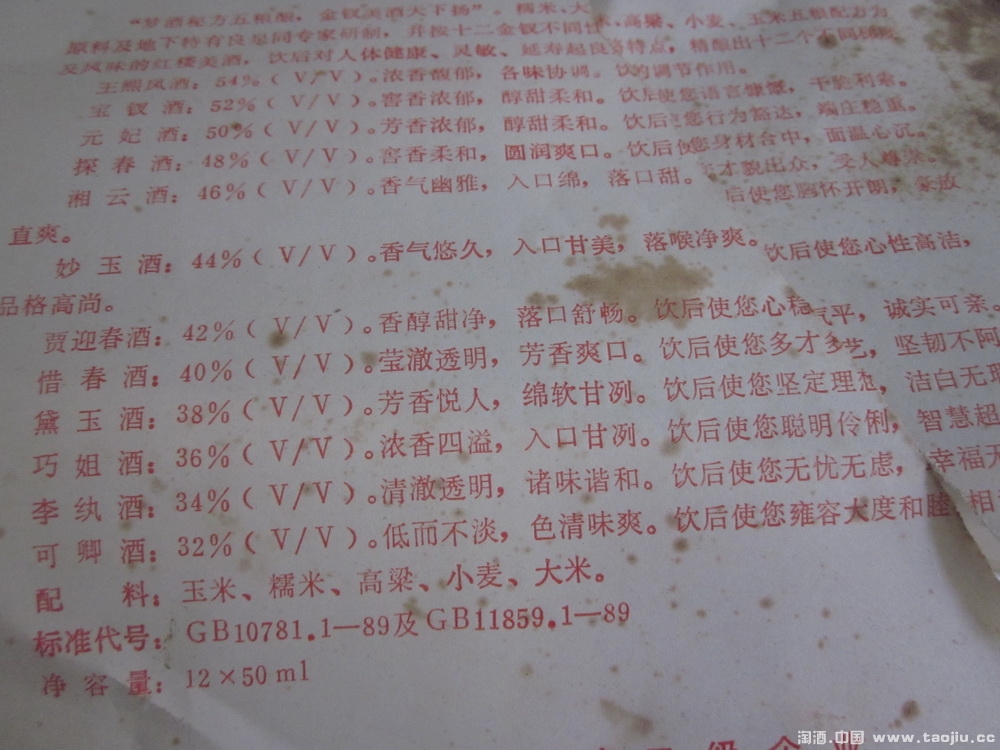 “梦酒秘方五粮酿，金钗美酒天下扬”。糯米、大
米、高粱、小麦、玉米五粮配方为
原料及地下特有良泉同专家研制，并按十二金钗不同性
及风味的红楼美酒，饮后对人体健康、灵敏、延寿起良 特点，精酿出十二个不同
王熙凤酒：54%（V/V）。浓香馥郁，各味协调。饮 的调节作用。
宝钗酒：52%（V/V）。窖香浓郁，醇甜柔和。饮后使您语言慷慨，干脆利索。
元妃酒：50%（V/V）。芳香浓郁，醇甜柔和。饮后 您行为豁达，端庄稳重。
探春酒：48%（V/V）。窖香柔和，圆润爽口。饮后使您身材台中，面温心沉。
湘云酒：46%（V/V）。香气幽雅，入口绵，落口甜。 才貌出众，受人尊
后使您胸怀开朗，豪放
直爽。
妙玉酒：44%（V/V）。香气悠久，入口甘美，落喉净爽。饮后使您心性高洁，
品格高尚。
贾迎春酒：42%（V/V）。香醇甜净，落口舒畅。饮后使您心 气平，诚实可亲。
惜春酒：40%（V/V）。莹澈透明，芳香爽口。饮后使您多才多艺，坚韧不阿
黛玉酒：38%（V/V）。芳香悦人，绵软甘冽。饮后使您坚定理 ，洁白无
巧姐酒：36%（V/V）。浓香四溢，入口甘冽。饮后使您聪明伶俐，智慧超
李纨酒：34%（V/V）。清澈透明，诸味谐和。饮后使您无忧无虑，幸福
可卿酒：32%（V/V）。低而不淡，色清味爽。饮后使您雍容大度和睦相
配料：玉米、糯米、高粱、小麦、大米。
标准代号：GB10781.1—89及GB11859.1—89
净容量：12×50ml
级企业
淘酒.中国 www.taojiu.cc